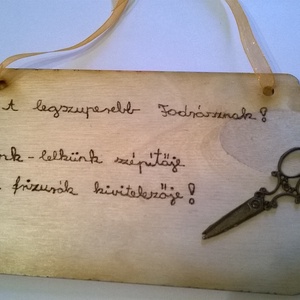 A legszuperebb Fodrásznak!
nk-lelkünk szépítője
frizurák kivitelezője!